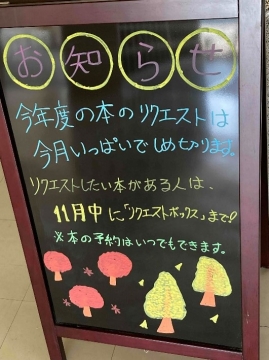 お知らせ
今年度の本のリクエストは
今月いっぱいでしめきります。
リクエストしたい本がある人は、
11月中に「リクエストボックス」まで!
※本の予約はいつでもできます。